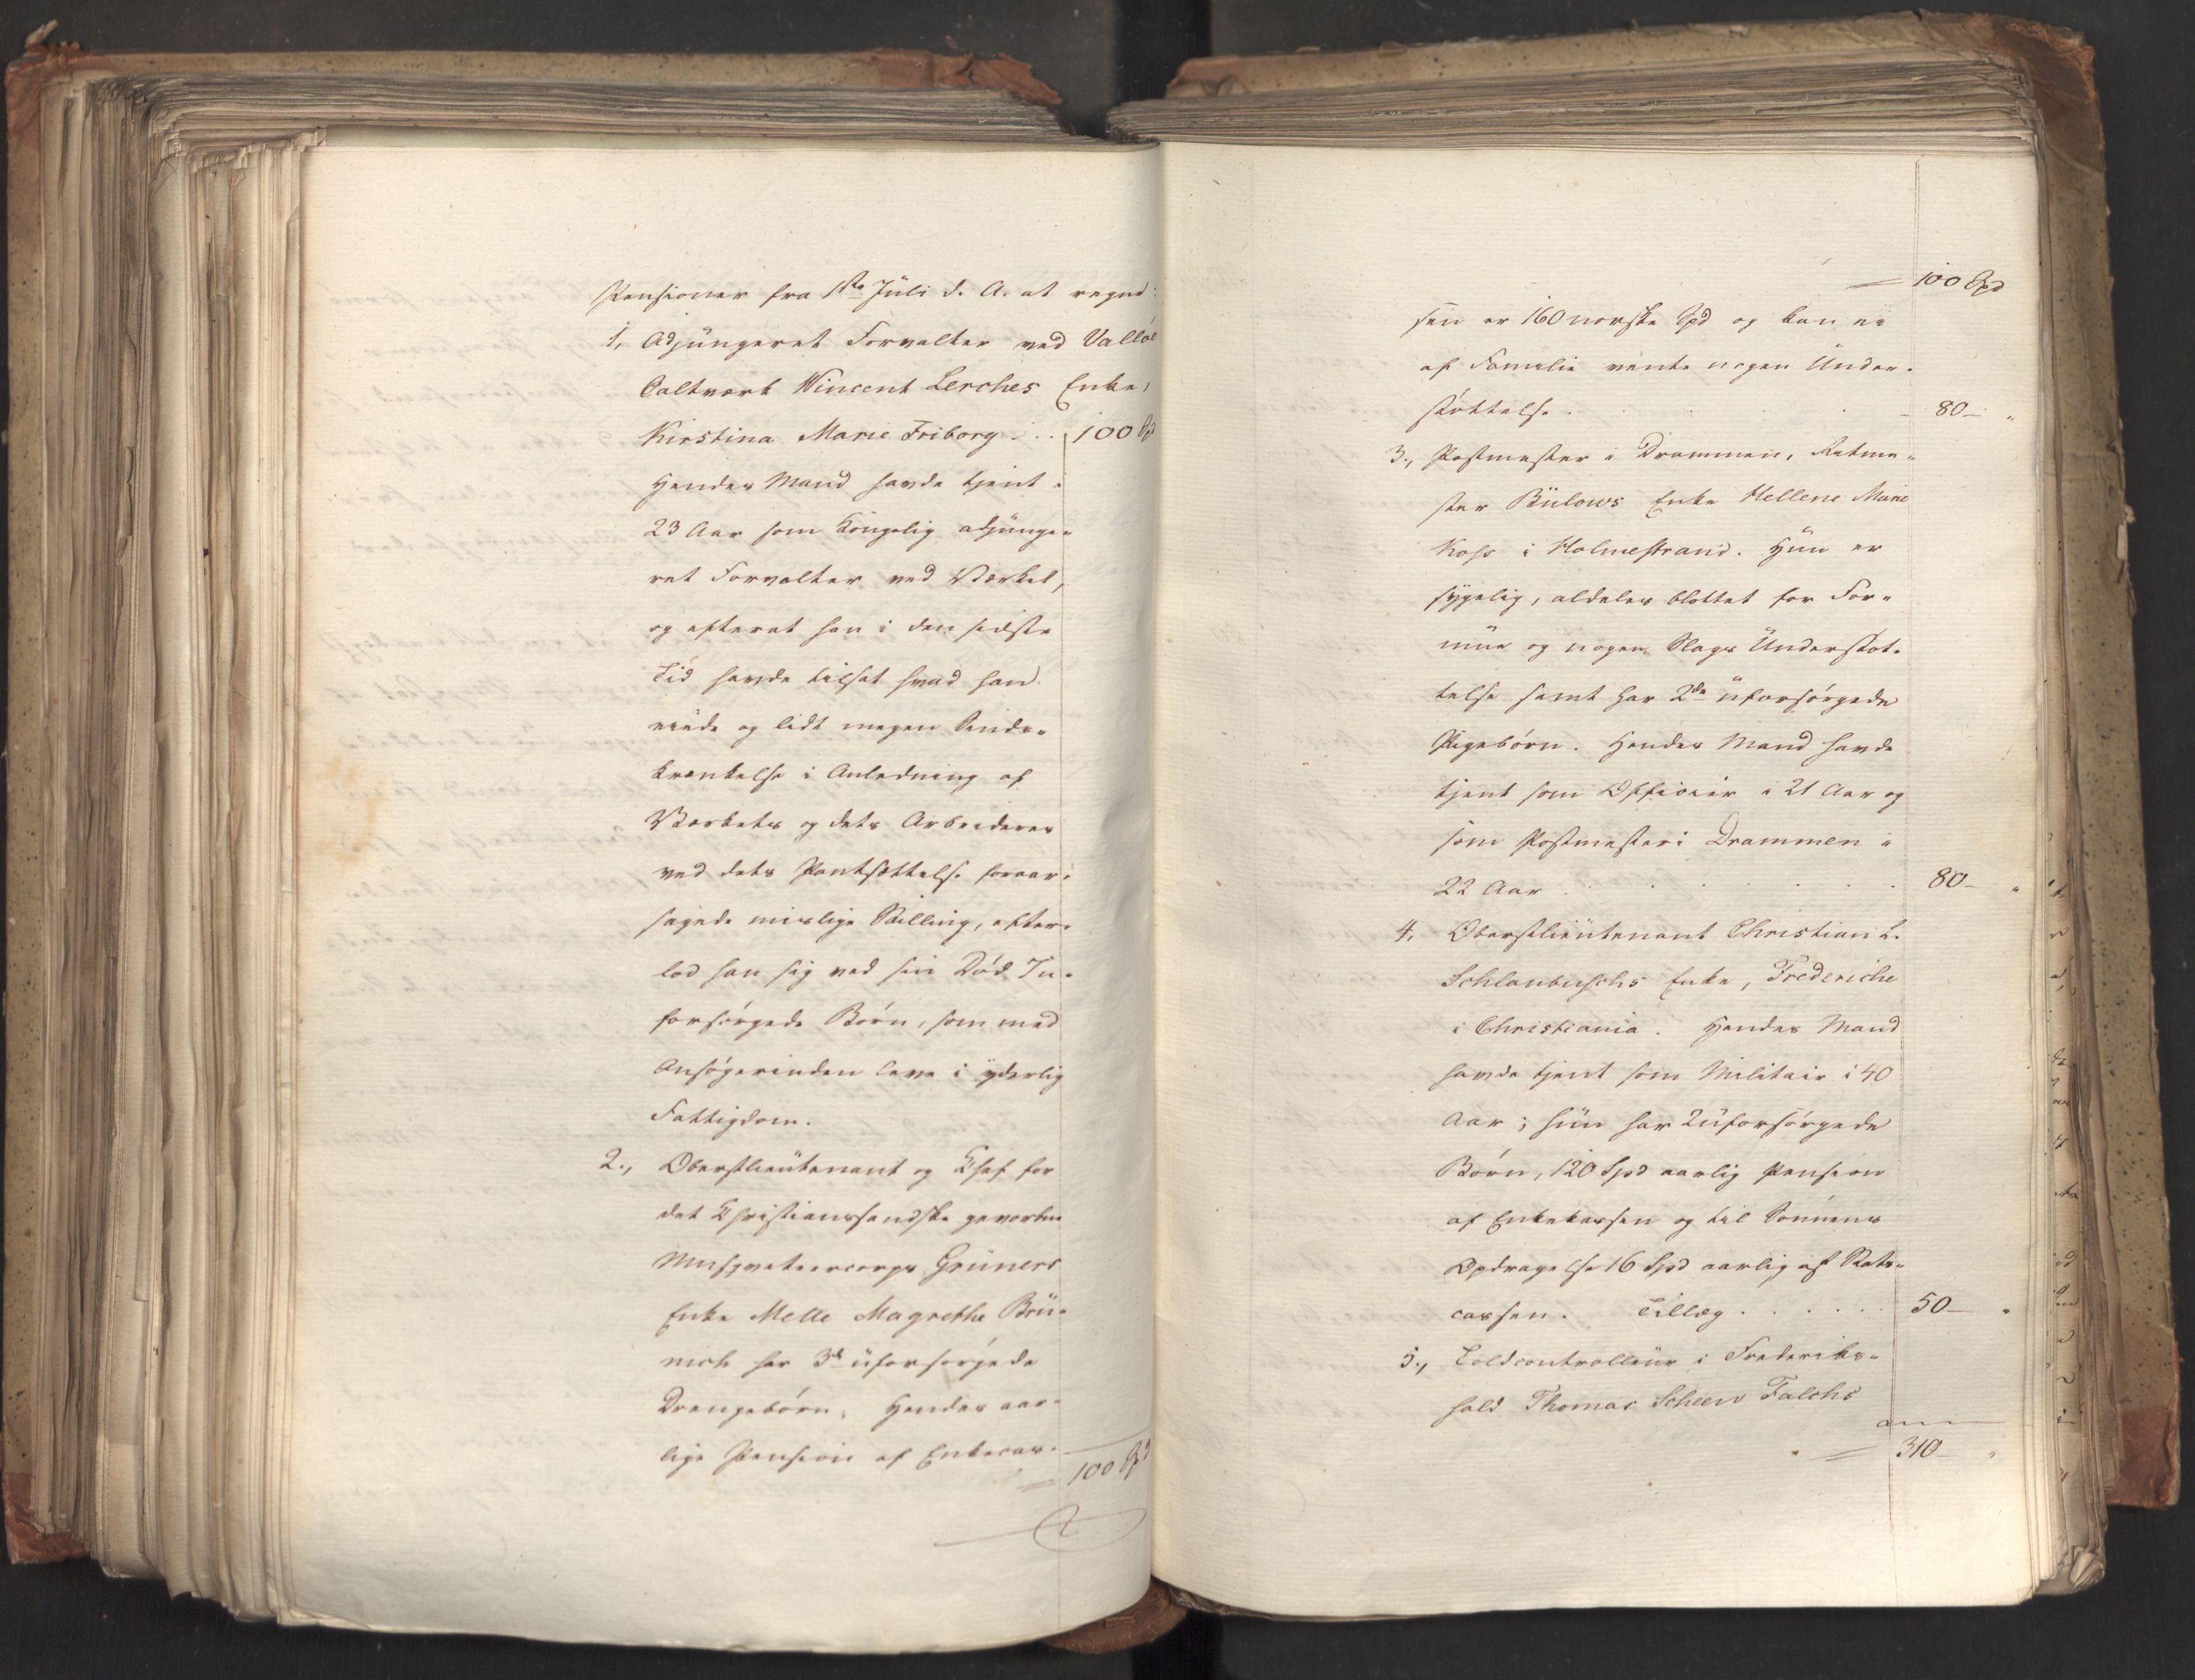 Pensioner fra 1ste Juli d. A. at regne:
1, Adjungeret Forvalter ved Valløe
Saltværk Wincent Lerches Enke,
Kirstina Marie Friborg . . . 100 Spd
Hendes Mand havde tjent i
23 Aar som Kongelig adjunge-
ret Forvalter ved Værket,
og efterat han i den sidste
Tid havde tilsat hvad han
eiede og lidt megen Sinds-
krænkelse i Anledning af
Værkets og dets Arbeideres
ved dets Pantsættelse foraar-
sagede mislige Stilling, efter-
lod han sig ved sin Død 7 u-
forsørgede Børn, som med
Ansøgerinden leve i yderlig
Fattigdom.
2., Oberstlieutenant og Chef for
det Christianssandske gevorbne
Musqveteercorps Grüners
Enke Mette Magrethe Brü-
nich har 3de uforsørgede
Drengebørn. Hendes aar-
lige Pension af Enkecas-
= 100 Spd
= 100 Spd
sen er 160 norske Spd og kan ei
af Familie vente nogen Under-
støttelse . . . . 80 — "
3., Postmester i Drammen, Ritme-
ster Bülows Enke Hellene Marie
Koss i Holmestrand. Hun er
sygelig, aldeles blottet for For-
mue og nogen Slags Understøt-
telse samt har 2de uforsørgede
Pigebørn. Hendes Mand havde
tjent som Officier i 21 Aar og
som Postmester i Drammen i
22 Aar . . . . . . . 80 — "
4, Oberstlieutenant Christian L.
Schlanbuschs Enke, Frederiche
i Christiania. Hendes Mand
havde tjent som Militair i 40
Aar; hun har 2 uforsørgede
Børn, 120 Spd aarlig Pension
af Enkekassen og til Sønnens
Opdragelse 16 Spd aarlig af Stats-
cassen. Tillæg . . . . . . 50 — "
5., Toldcontrolleur i Frederiks-
hald Thomas Scheen Falchs
= 310 — "